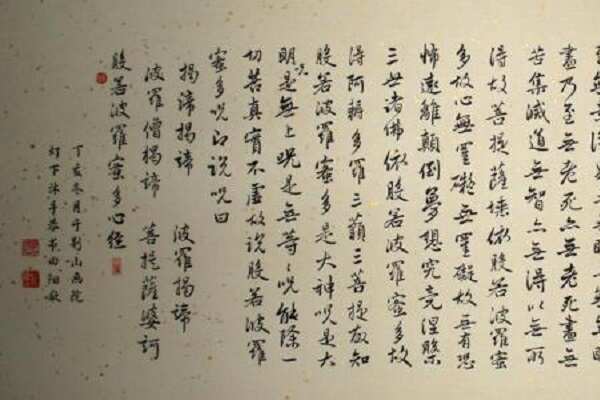 盡乃至無老死亦無老死盡無
苦集滅道無智亦無得以無所
得故菩提薩埵依般若波羅蜜
多故心無罣礙無罣礙故無有恐
怖遠離顛倒夢想究竟涅槃
三世諸佛依般若波羅蜜多故
得阿耨多羅三藐三菩提故知
般若波羅蜜多是大神呪是大
明呪是無上呪是無等々呪能除一
切苦真實不虛故說般若波羅
蜜多呪即說呪曰
揭諦揭諦 波羅揭諦
波羅僧揭諦 菩提薩婆訶
般若波羅蜜多心經
丁亥冬月于荊山画院
灯下沐手恭書